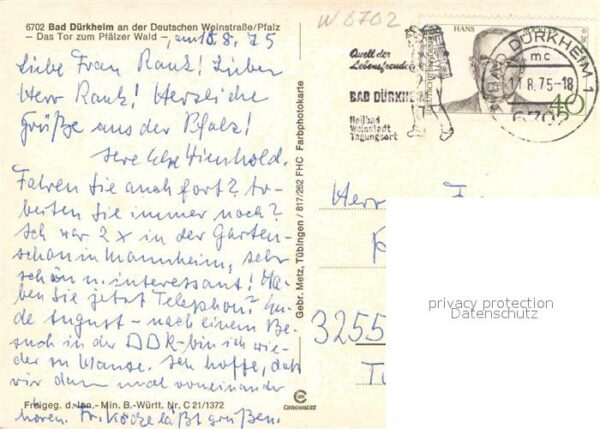 W 6702
6702 Bad Dürkheim an der Deutschen Weinstraße/Pfalz
– Das Tor zum Pfälzer Wald –
, am 18.8.75
Liebe Frau Rank! Lieber
Herr Rank! Herzliche
Grüße aus der Pfalz!
Ihre Else
Fahren Sie auch fort? Ar-
beiten Sie immer noch?
Ich war 2 x in der Garten-
schau in Mannheim, sehr
schön u. interessant! Ha-
ben Sie jetzt Telephon? En-
de August - nach einem Be-
such in der DDR - bin ich wie-
der zu Hause. Ich hoffe, daß
wir dann mal voneinander
hören. Fr. läßt grüßen.
Freigeg. d. Inn.-Min. B.-Württ. Nr. C 21/1372
Gebr. Metz, Tübingen / 817/262 FHC Farbphotokarte
Quell der
Lebensfreude
BAD DÜRKHEIM
Heilbad
Weinstadt
Tagungsort
HANS
40
BAD DÜRKHEIM 1
mc
8.75-18
6702
Herr
3255
privacy protection
Datenschutz